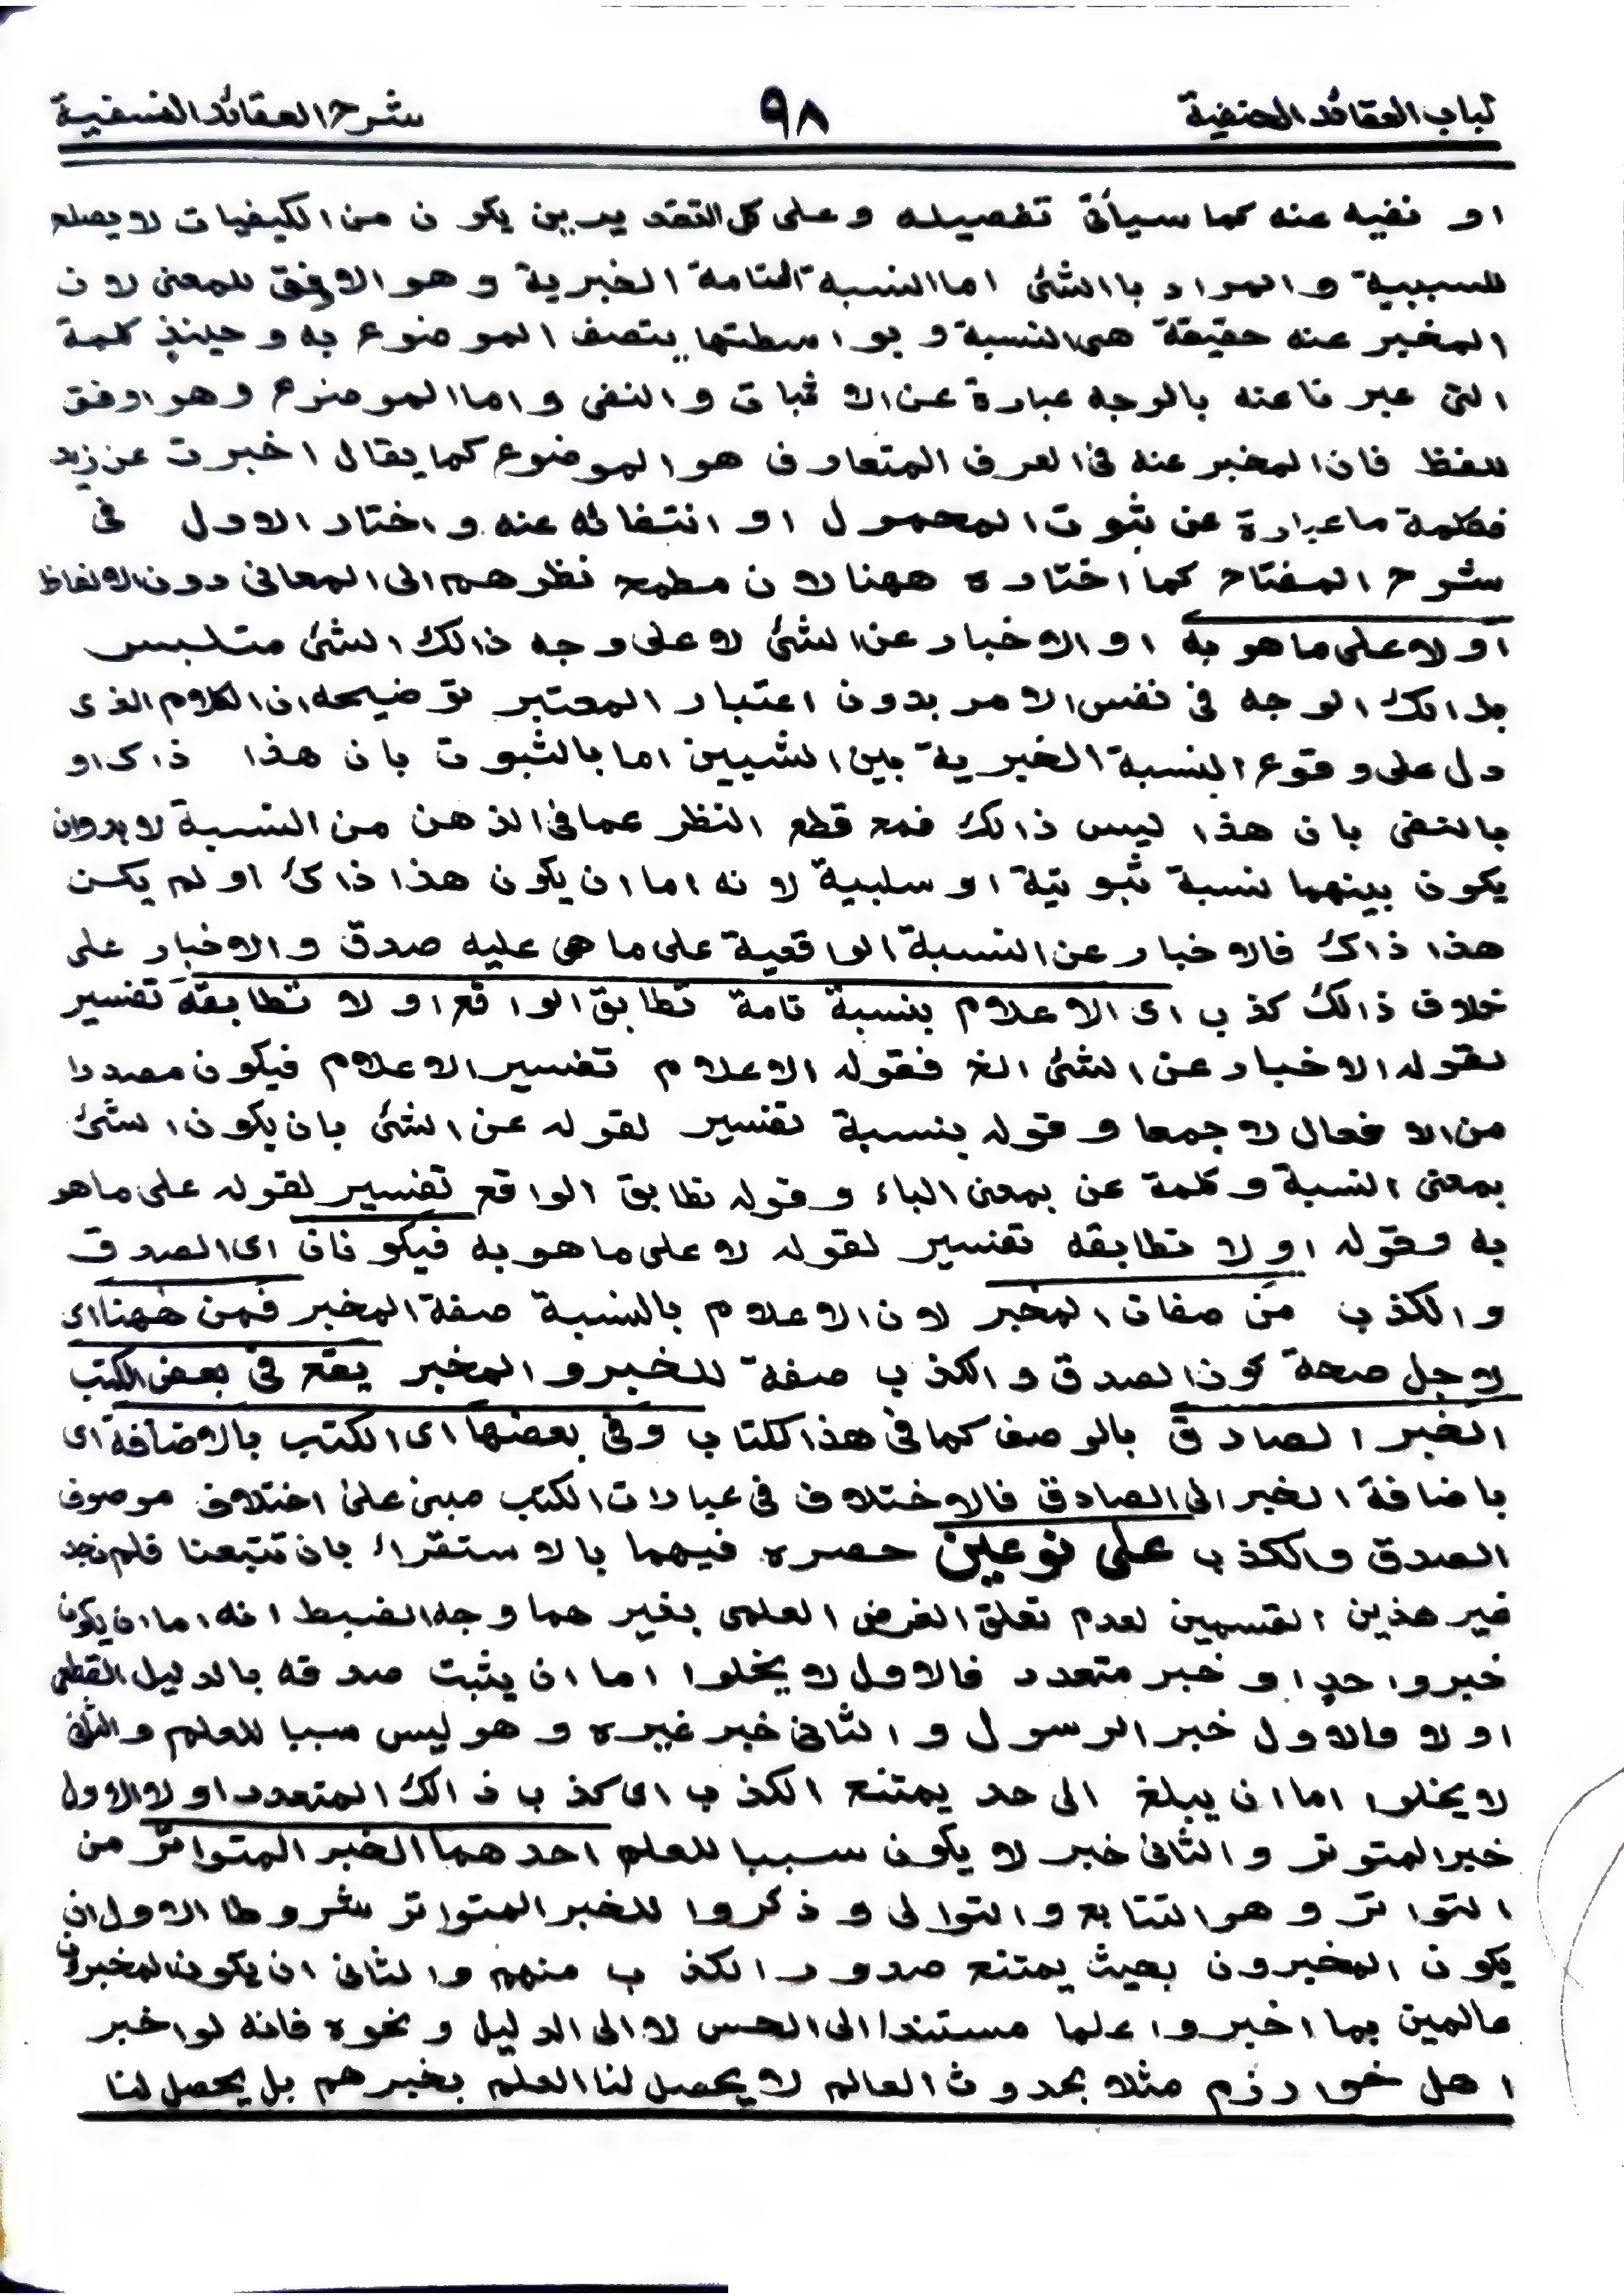 لباب العقائد الحنفية ٩٨ شرح العقائد النسفية
او نفيه عنه كما سيأتى تفصيله وعلى كل التقديرين يكون من الكيفيات لا يصلح
للسببية والمراد باالشئ اما النسبة التامة الخبرية وهو الاوفق للمعنى لان
المخبر عنه حقيقة هى النسبة و بواسطتها يتصف الموضوع به وحينئذ كلمة
التى عبرنا عنه بالوجه عبارة عن الاثبات والنفى واما الموضوع وهو اوفق
للفظ فان المخبر عنه فى العرف المتعارف هو الموضوع كما يقال اخبرت عن زيد
فكلمة ما عبارة عن ثبوت المحمول او انتفائه عنه واختار الاول فى
شرح المفتاح كما اختاره ههنا لان مطمح نظرهم الى المعانى دون الالفاظ
او لا على ما هو به او الاخبار عن الشئ لا على وجه ذالك الشئ متلبس
بذالك الوجه فى نفس الامر بدون اعتبار المعتبر توضيحه ان الكلام الذى
دل على وقوع النسبة الخبرية بين الشيين اما بالثبوت بان هذا ذاك او
بالنفى بان هذا ليس ذالك فمع قطع النظر عما فى الذهن من النسبة لا بد وان
يكون بينهما نسبة ثبوتية او سلبية لانه اما ان يكون هذا ذاك او لم يكن
هذا ذاك فالاخبار عن النسبة الواقعية على ما هى عليه صدق والاخبار على
خلاف ذالك كذب اى الاعلام بنسبة تامة تطابق الواقع او لا تطابقه تفسير
لقوله الاخبار عن الشئ الخ فقوله الاعلام تفسير الاعلام فيكون مصدرا
من الافعال لا جمعا وقوله بنسبة تفسير لقوله عن الشئ بان يكون الشئ
بمعنى النسبة وكلمة عن بمعنى الباء وقوله تطابق الواقع تفسير لقوله على ما هو
به وقوله او لا تطابقه تفسير لقوله لا على ما هو به فيكونان اى الصدق
والكذب من صفات المخبر لان الاعلام بالنسبة صفة المخبر فمن ههنا اى
لاجل صحة كون الصدق والكذب صفة للخبر والمخبر يقع فى بعض الكتب
الخبر الصادق بالوصف كما فى هذا لكتاب وفى بعضها اى الكتب بالاضافة اى
باضافة الخبر الى الصادق فالاختلاف فى عبارات الكتب مبنى على اختلاف موصوف
الصدق والكذب على نوعين حصره فيهما بالاستقراء بان تتبعنا فلم نجد
غير هذين القسمين لعدم تعلق الغرض العلمى بغيرهما وجه الضبط انه اما ان يكون
خبر واحد او خبر متعدد فالاول لا يخلوا اما ان يثبت صدقه بالدليل القطعى
او لا فالاول خبر الرسول والثانى خبر غيره وهو ليس سببا للعلم والثانى
لا يخلوا اما ان يبلغ الى حد يمتنع الكذب اى كذب ذالك المتعدد او لا الاول
خبر المتوتر والثانى خبر لا يكون سببا للعلم احدهما الخبر المتواتر من
التواتر وهو التتابع والتوالى وذكروا للخبر المتواتر شروطا الاول ان
يكون المخبرون بحيث يمتنع صدور الكذب منهم والثانى ان يكون المخبرون
عالمين بما اخبروا علما مستندا الى الحس لا الى الدليل ونحوه فانه لو اخبر
اهل خوارزم مثلا بحدوث العالم لا يحصل لنا العلم بخبرهم بل يحصل لنا